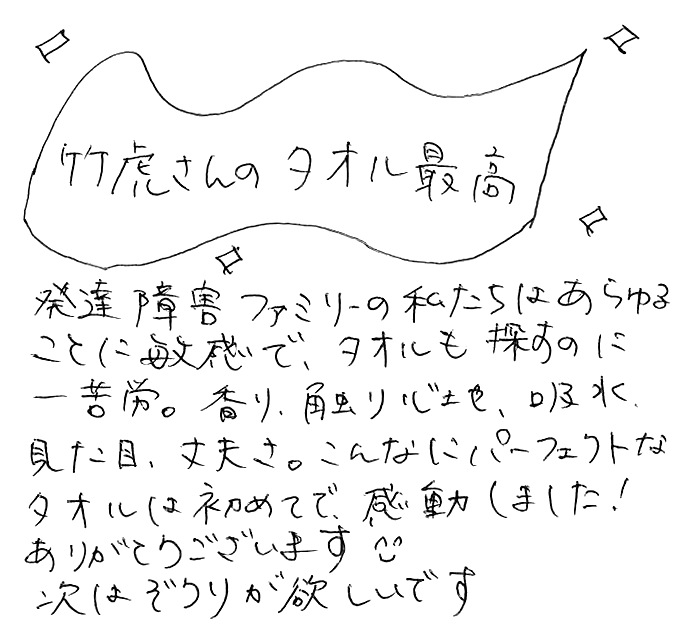 竹虎さんのタオル最高
発達障害ファミリーの私たちはあらゆる
ことに敏感で、タオルも探すのに
一苦労。香り、触り心地、吸水、
見た目、丈夫さ。こんなにパーフェクトな
タオルは初めてで、感動しました!
ありがとうございます
次はぞうりが欲しいです